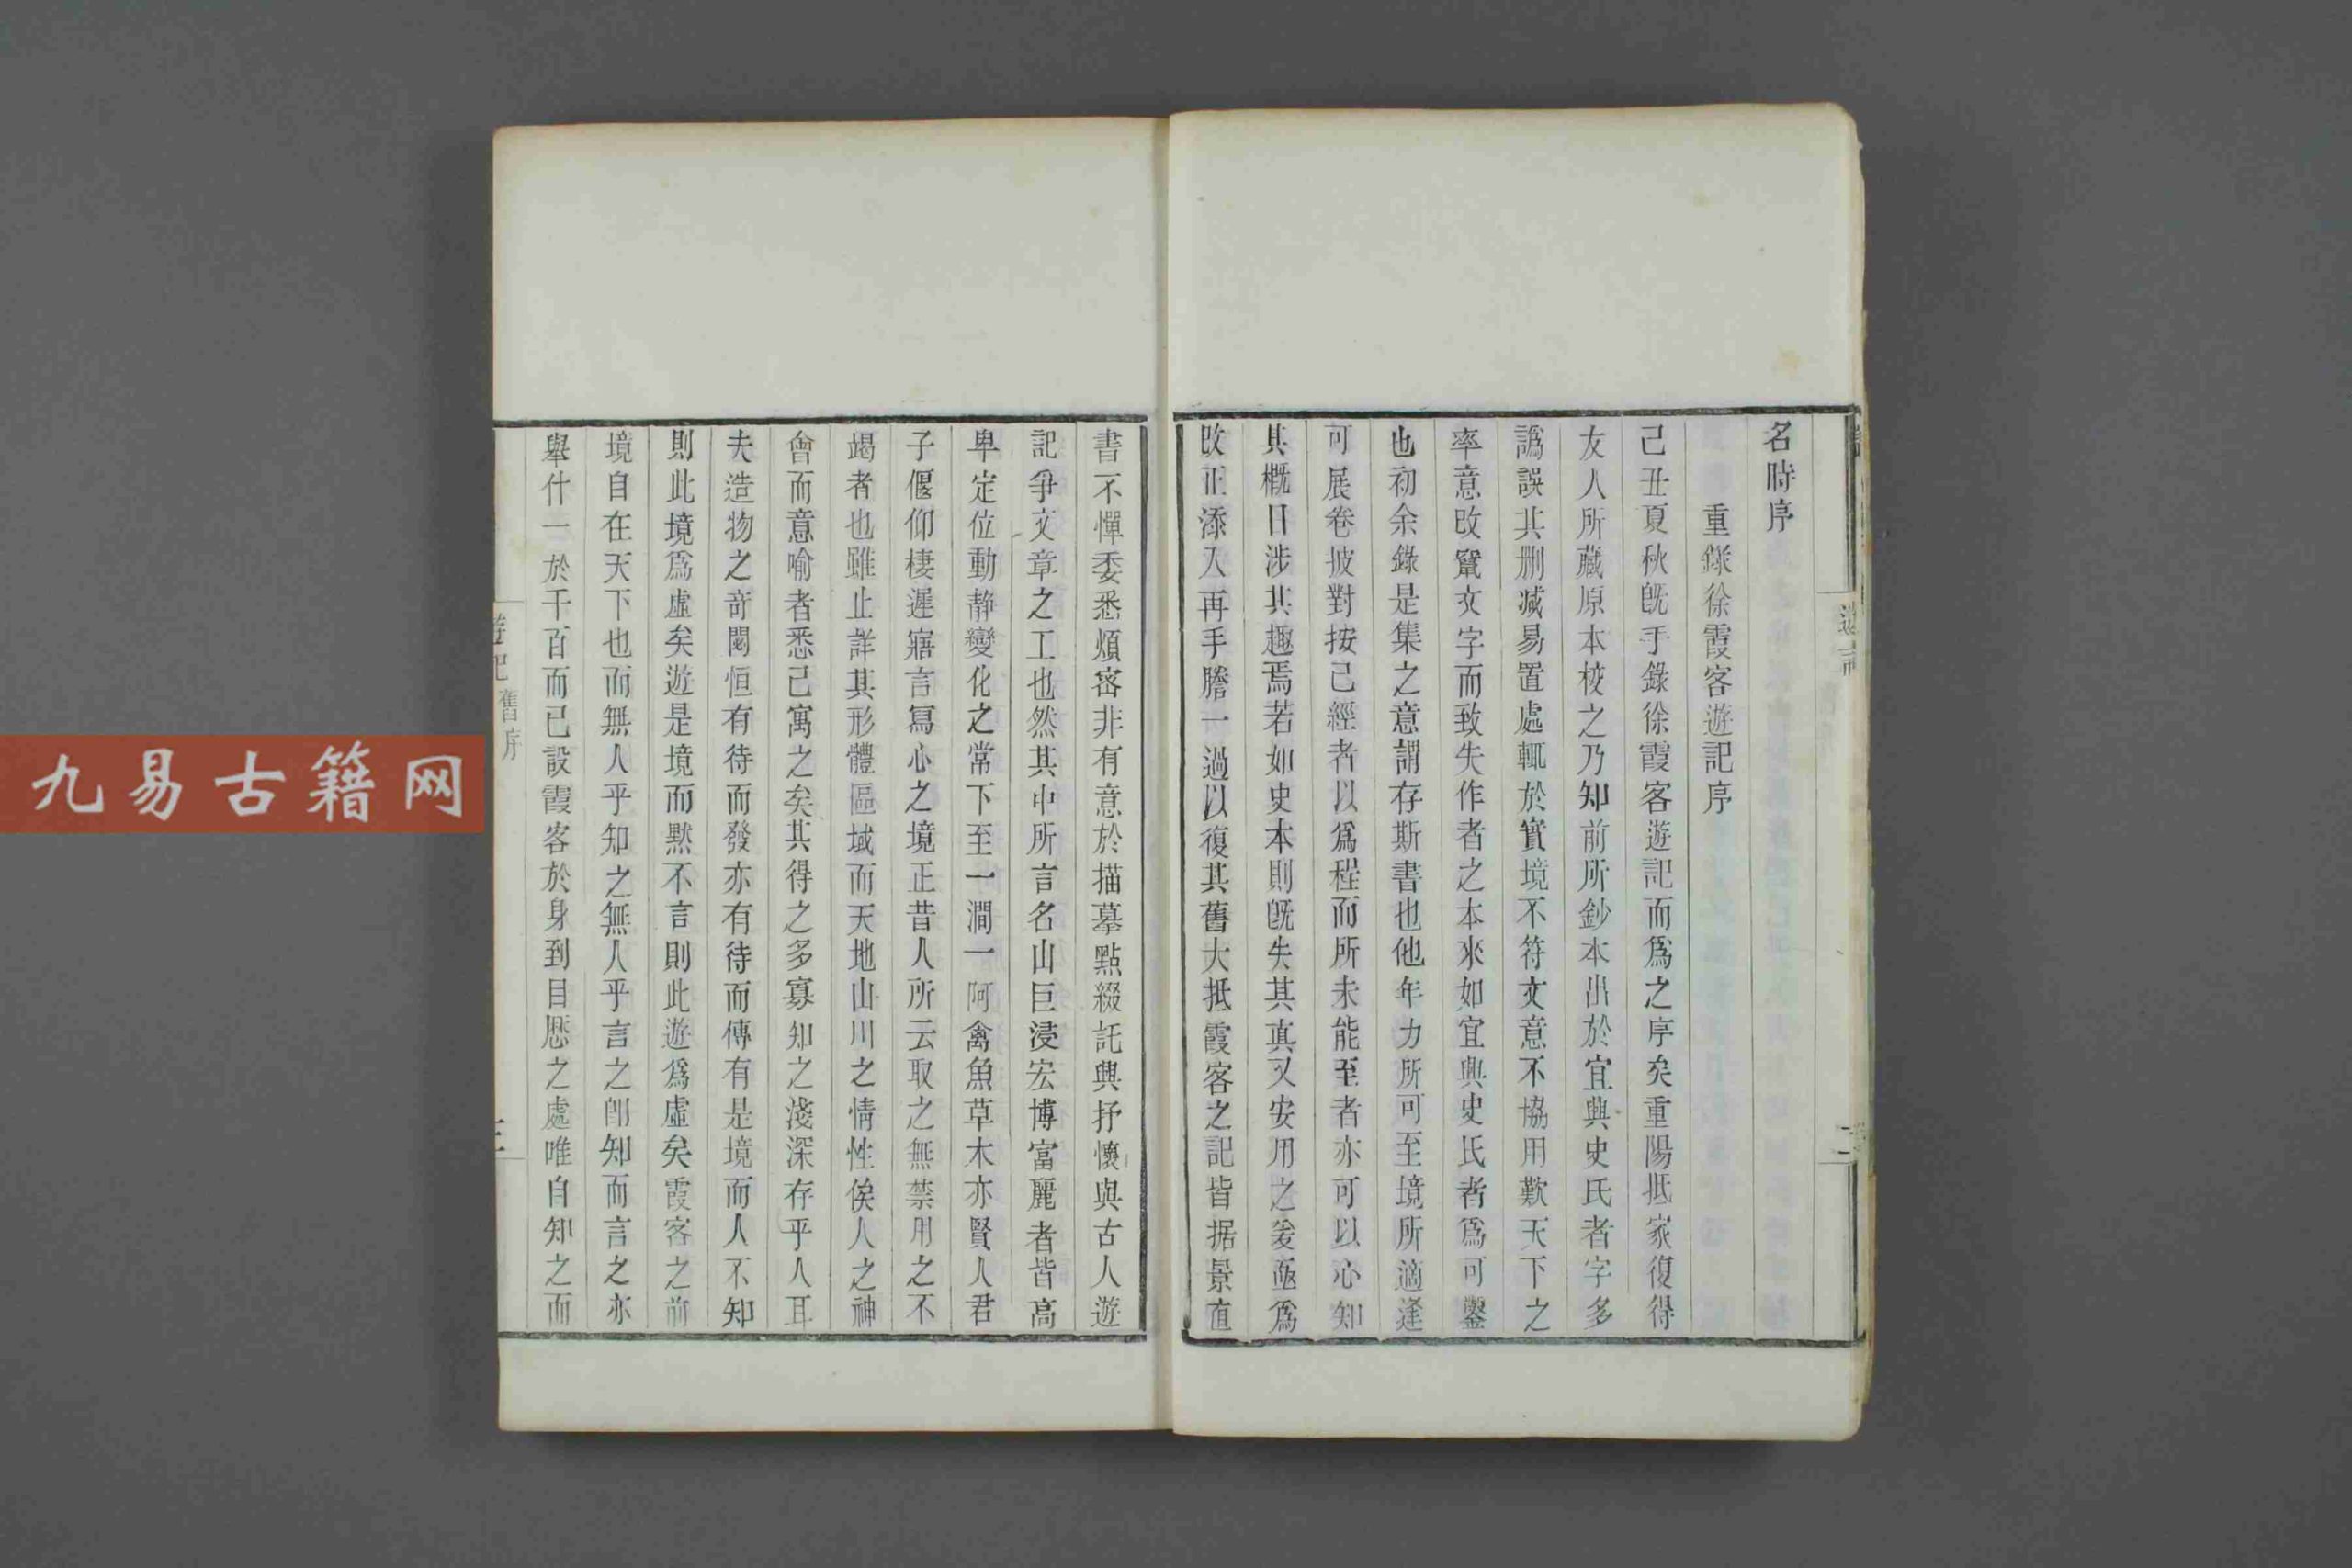 名時序
重錄徐霞客遊記序
己丑夏秋旣手錄徐霞客遊記而爲之序矣重陽抵家復得
友人所藏原本校之乃知前所鈔本出於宜興史氏者字多
譌誤其刪減易置處輒於實境不符文意不協用歎天下之
率意改竄文字而致失作者之本來如宜興史氏者爲可鑿
也初余錄是集之意謂存斯書也他年力所可至境所適逢
可展卷披對按己經者以爲程而所未能至者亦可以心知
其概目涉其趣焉若如史本則旣失其真又安用之爰亟爲
改正添入再手謄一過以復其舊大抵霞客之記皆据景直
書不憚委悉煩密非有意於描摹點綴託興抒懷與古人遊
記爭文章之工也然其中所言名山巨浸宏博富麗者皆高
卑定位動靜變化之常下至一澗一阿禽魚草木亦賢人君
子偃仰棲遲寤言寫心之境正昔人所云取之無禁用之不
竭者也雖止詳其形體區域而天地山川之情性俟人之神
會而意喻者悉已寓之矣其得之多寡知之淺深存乎人耳
夫造物之奇閟恒有待而發亦有待而傳有是境而人不知
則此境爲虛矣遊是境而默不言則此遊爲虛矣霞客之前
境自在天下也而無人乎知之無人乎言之卽知而言之亦
舉什一於千百而已設霞客於身到目歷之處唯自知之而
遊記
舊序
三
遊記
二
九易古籍网